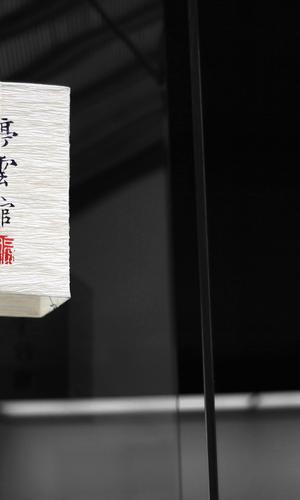 亭雲館